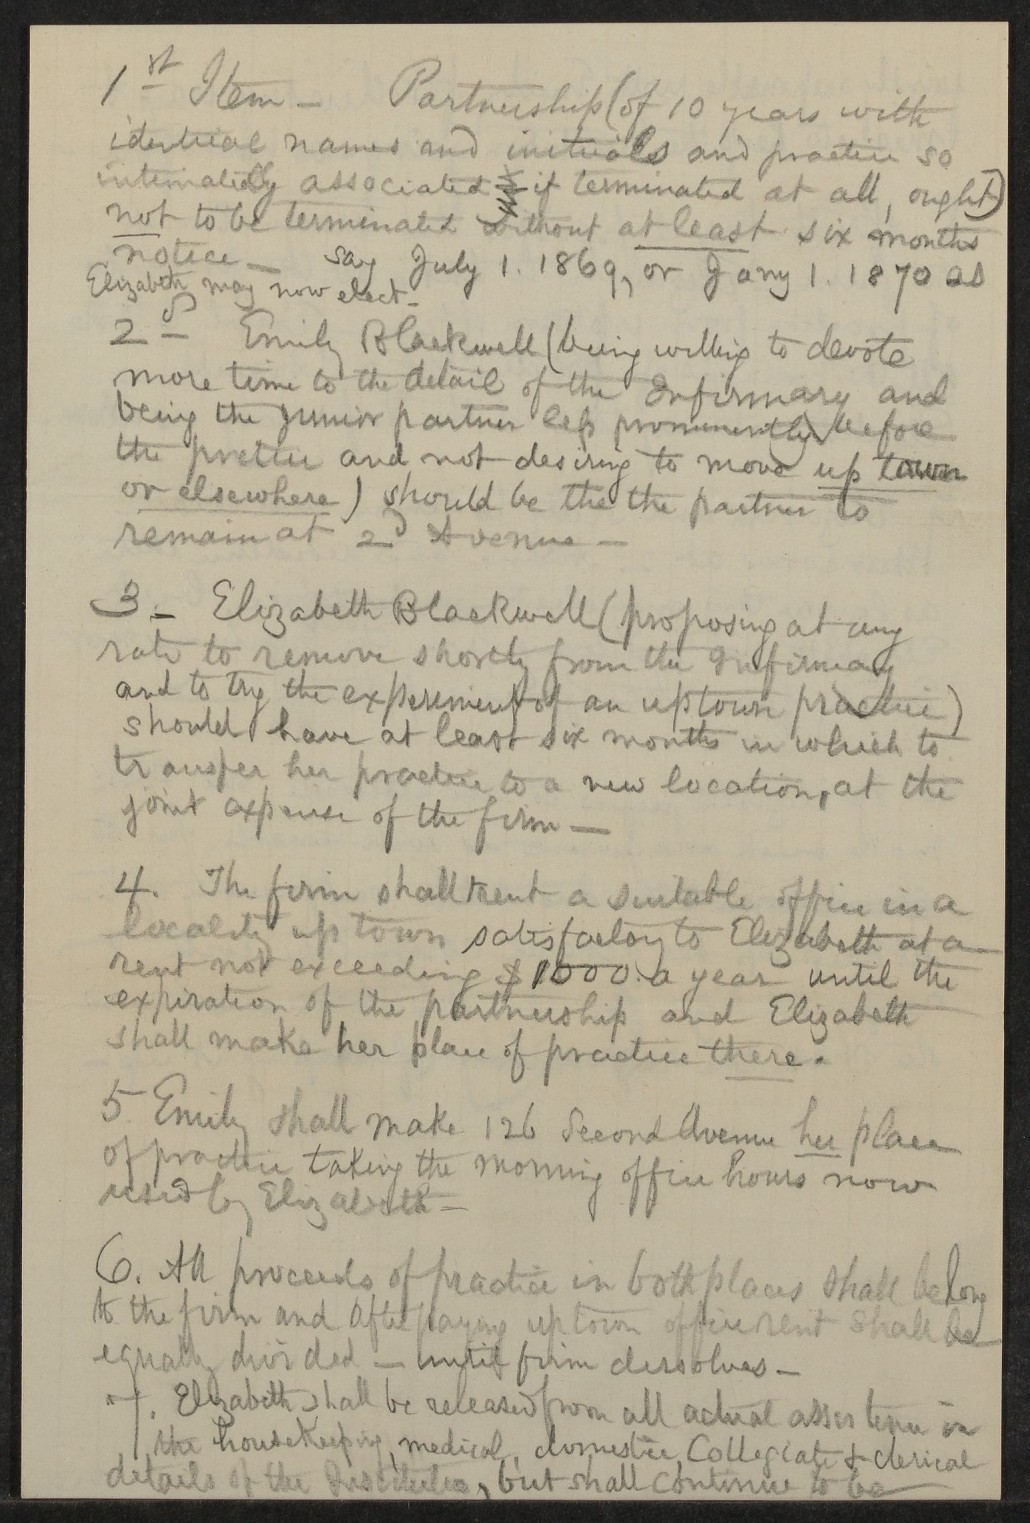 1st Item - Partnership (of 10 years with
identical names and initials and practice so
intimately associated) if terminated at all, ought
not to be terminated without at least six months
notice - say July 1. 1869, or Jany 1. 1870 as
Elizabeth may now elect -
2d - Emily Blackwell (being willing to devote
more time to the detail of the Infirmary and
being the junior partner less prominently before
the practice and not desiring to move up town
or elsewhere) should be the the partner to
remain at 2d Avenue -
3 - Elizabeth Blackwell (proposing at any
rate to remove shortly from the Infirmary
and to try the experiment of an uptown practice)
should have at least six months in which to
transfer her practice to a new location, at the
joint expense of the firm -
4. The firm shall rent a suitable office in a
locality up town satisfactory to Elizabeth at a
rent not exceeding $1000 a year until the
expiration of the partnership and Elizabeth
shall make her place of practice there.
5 Emily shall make 126 Second Avenue her place
of practice taking the morning office hours now
used by Elizabeth -
6. All proceeds of practice in both places shall belong
to the firm and after paying uptown office rent shall be
equally divided - until firm dissolves -
7. Elizabeth shall be released from all actual assistance in
the housekeeping, medical, domestic, Collegiate & clerical
details of the Institution, but shall continue to be